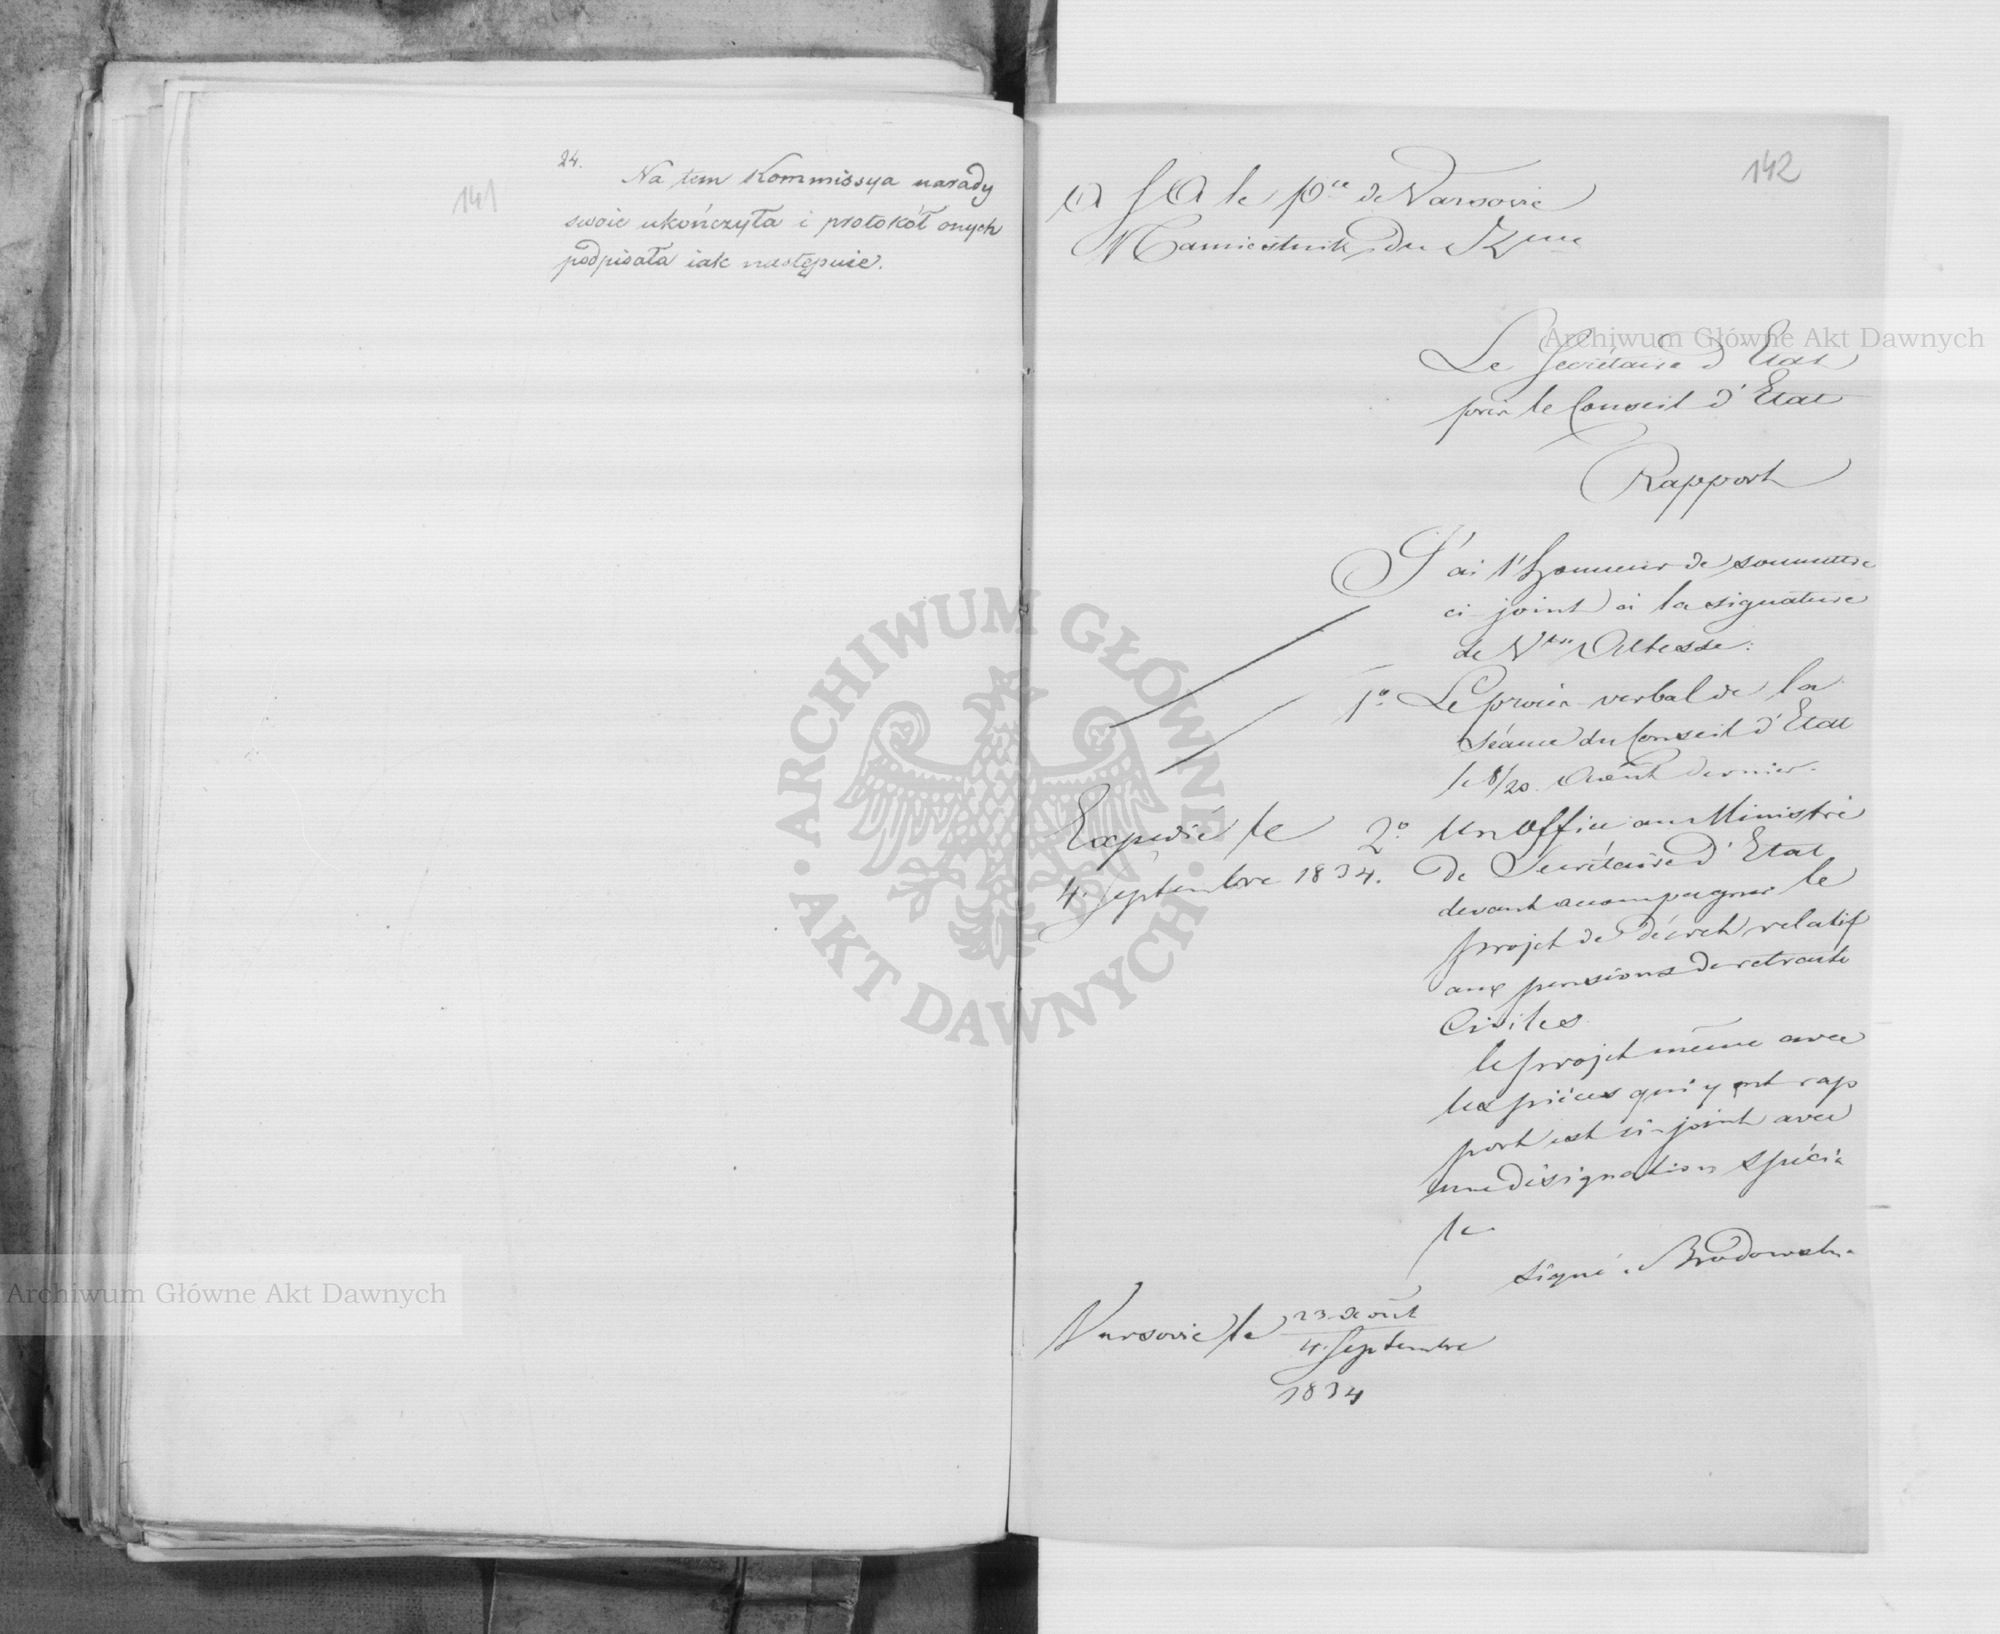 141
24.
Na tem Kommissya narady
swoie ukończyła i protokół onych
podpisała iak następuie.
142
A S A le Pce de Varsovie
Namiestnik du Rme
Le Secrétaire d'Etat
près le Conseil d'Etat
Rapport
J'ai l'honneur de soumettre
ci-joint à la signature
de Vtre Altesse:
1o Le procès-verbal de la
séance du Conseil d'Etat
le 8/20 Août dernier.
Expedié le
4. Septembre 1834.
2o Un Office au Ministre
de Secrétaire d'Etat
devant accompagner le
projet de décret relatif
aux pensions de retraite
Civiles
le projet même avec
les pièces qui y ont rap
port est ci-joint avec
une désignation spécia
le
signé: Brodowski
Varsovie le 23. Août
4. Septembre
1834
Archiwum Główne Akt Dawnych
Archiwum Główne Akt Dawnych
ARCHIWUM GŁÓWNE · AKT DAWNYCH ·